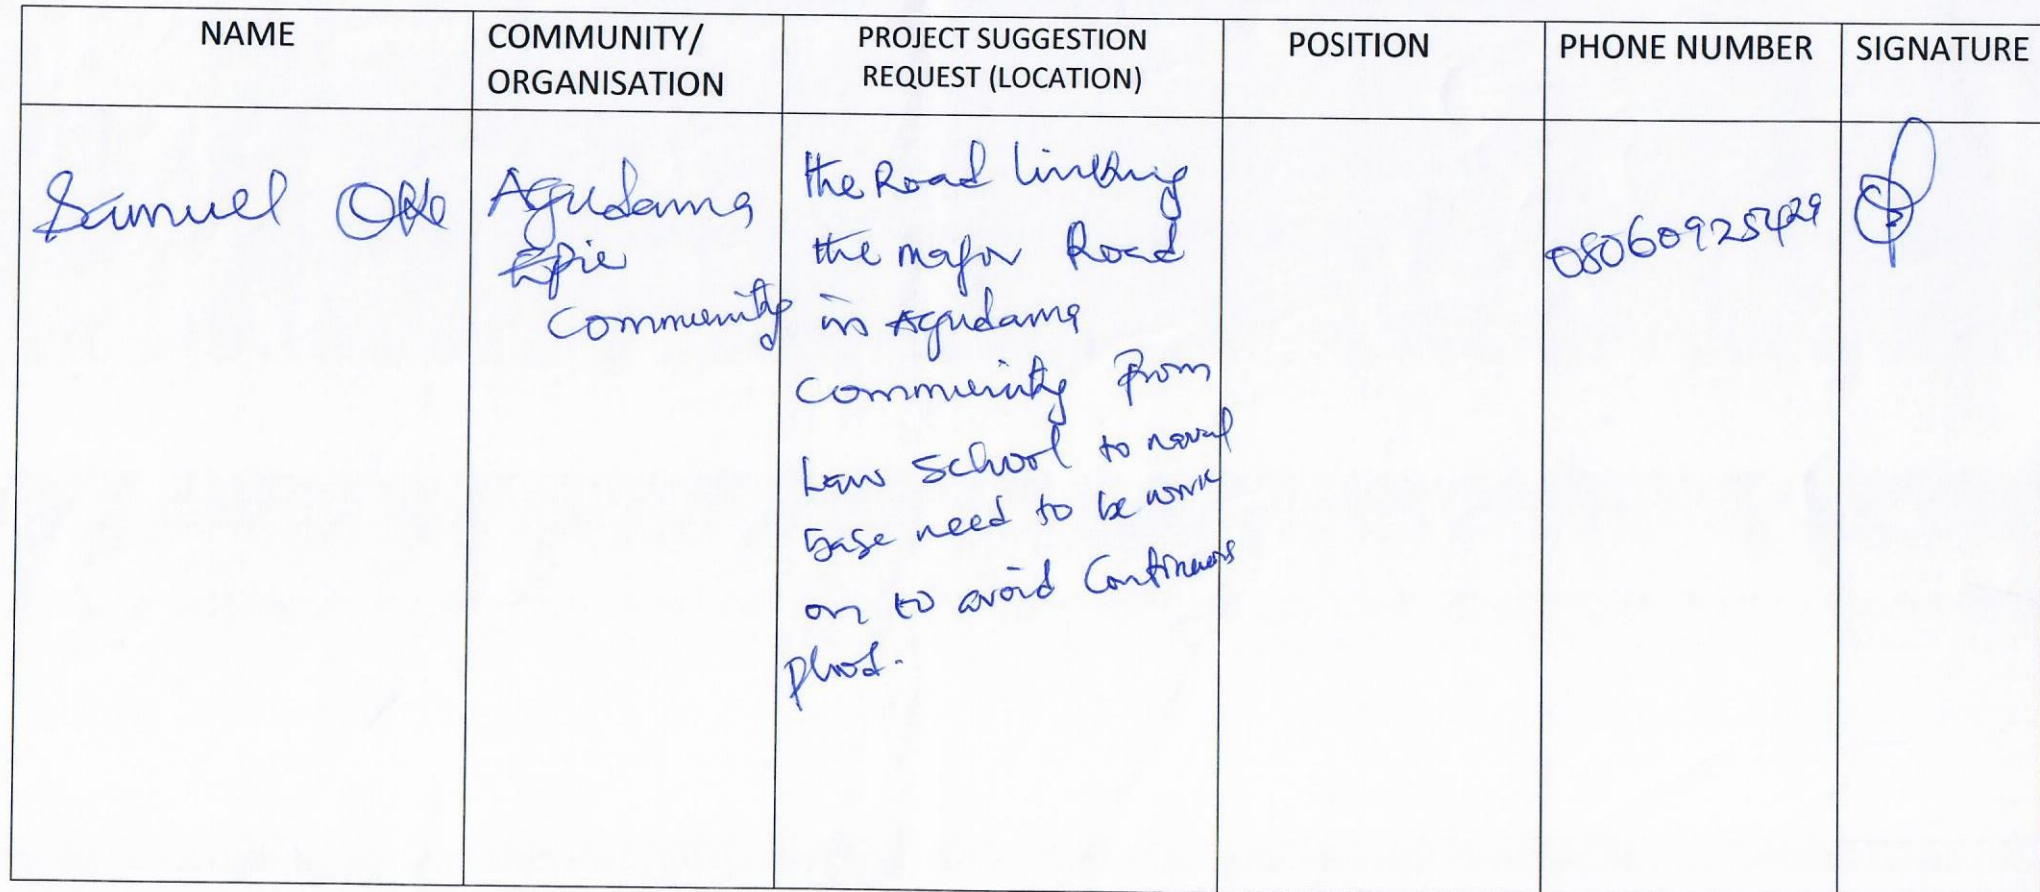 NAME
COMMUNITY/
ORGANISATION
PROJECT SUGGESTION
REQUEST (LOCATION)
POSITION
PHONE NUMBER
SIGNATURE
Samuel Oke
Agudama
Epie
Community
the Road linking
the major Road
in Agudama
Community from
Law School to naval
base need to be work
on to avoid Continuous
flood.
08060925429